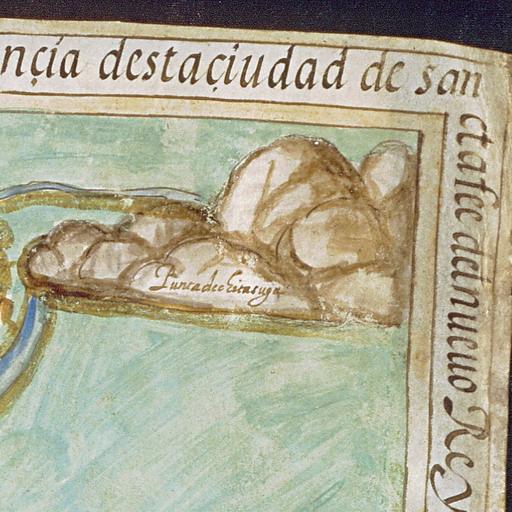 nçia destaçiudad de san
ctafee del nueuo Rey
Punta de chicasuga